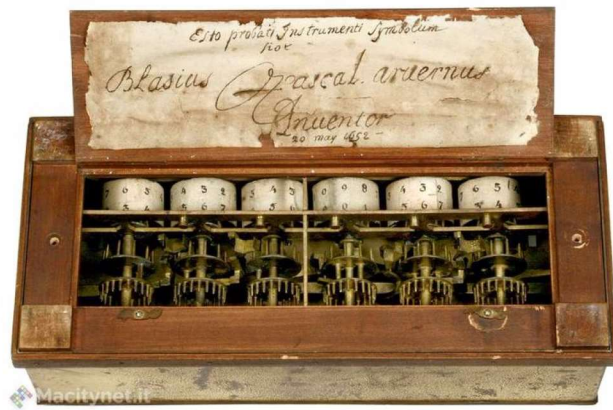 Esto probati Instrumenti Symbolum
hoc
Blasius Pascal arvernus
Inventor
20 may 1652
0 3
4 3 2
3 4 3
0 0 8
4 3 2
6 5 4
5 6 7
4 5 6 7
5 4
Macitynet.it